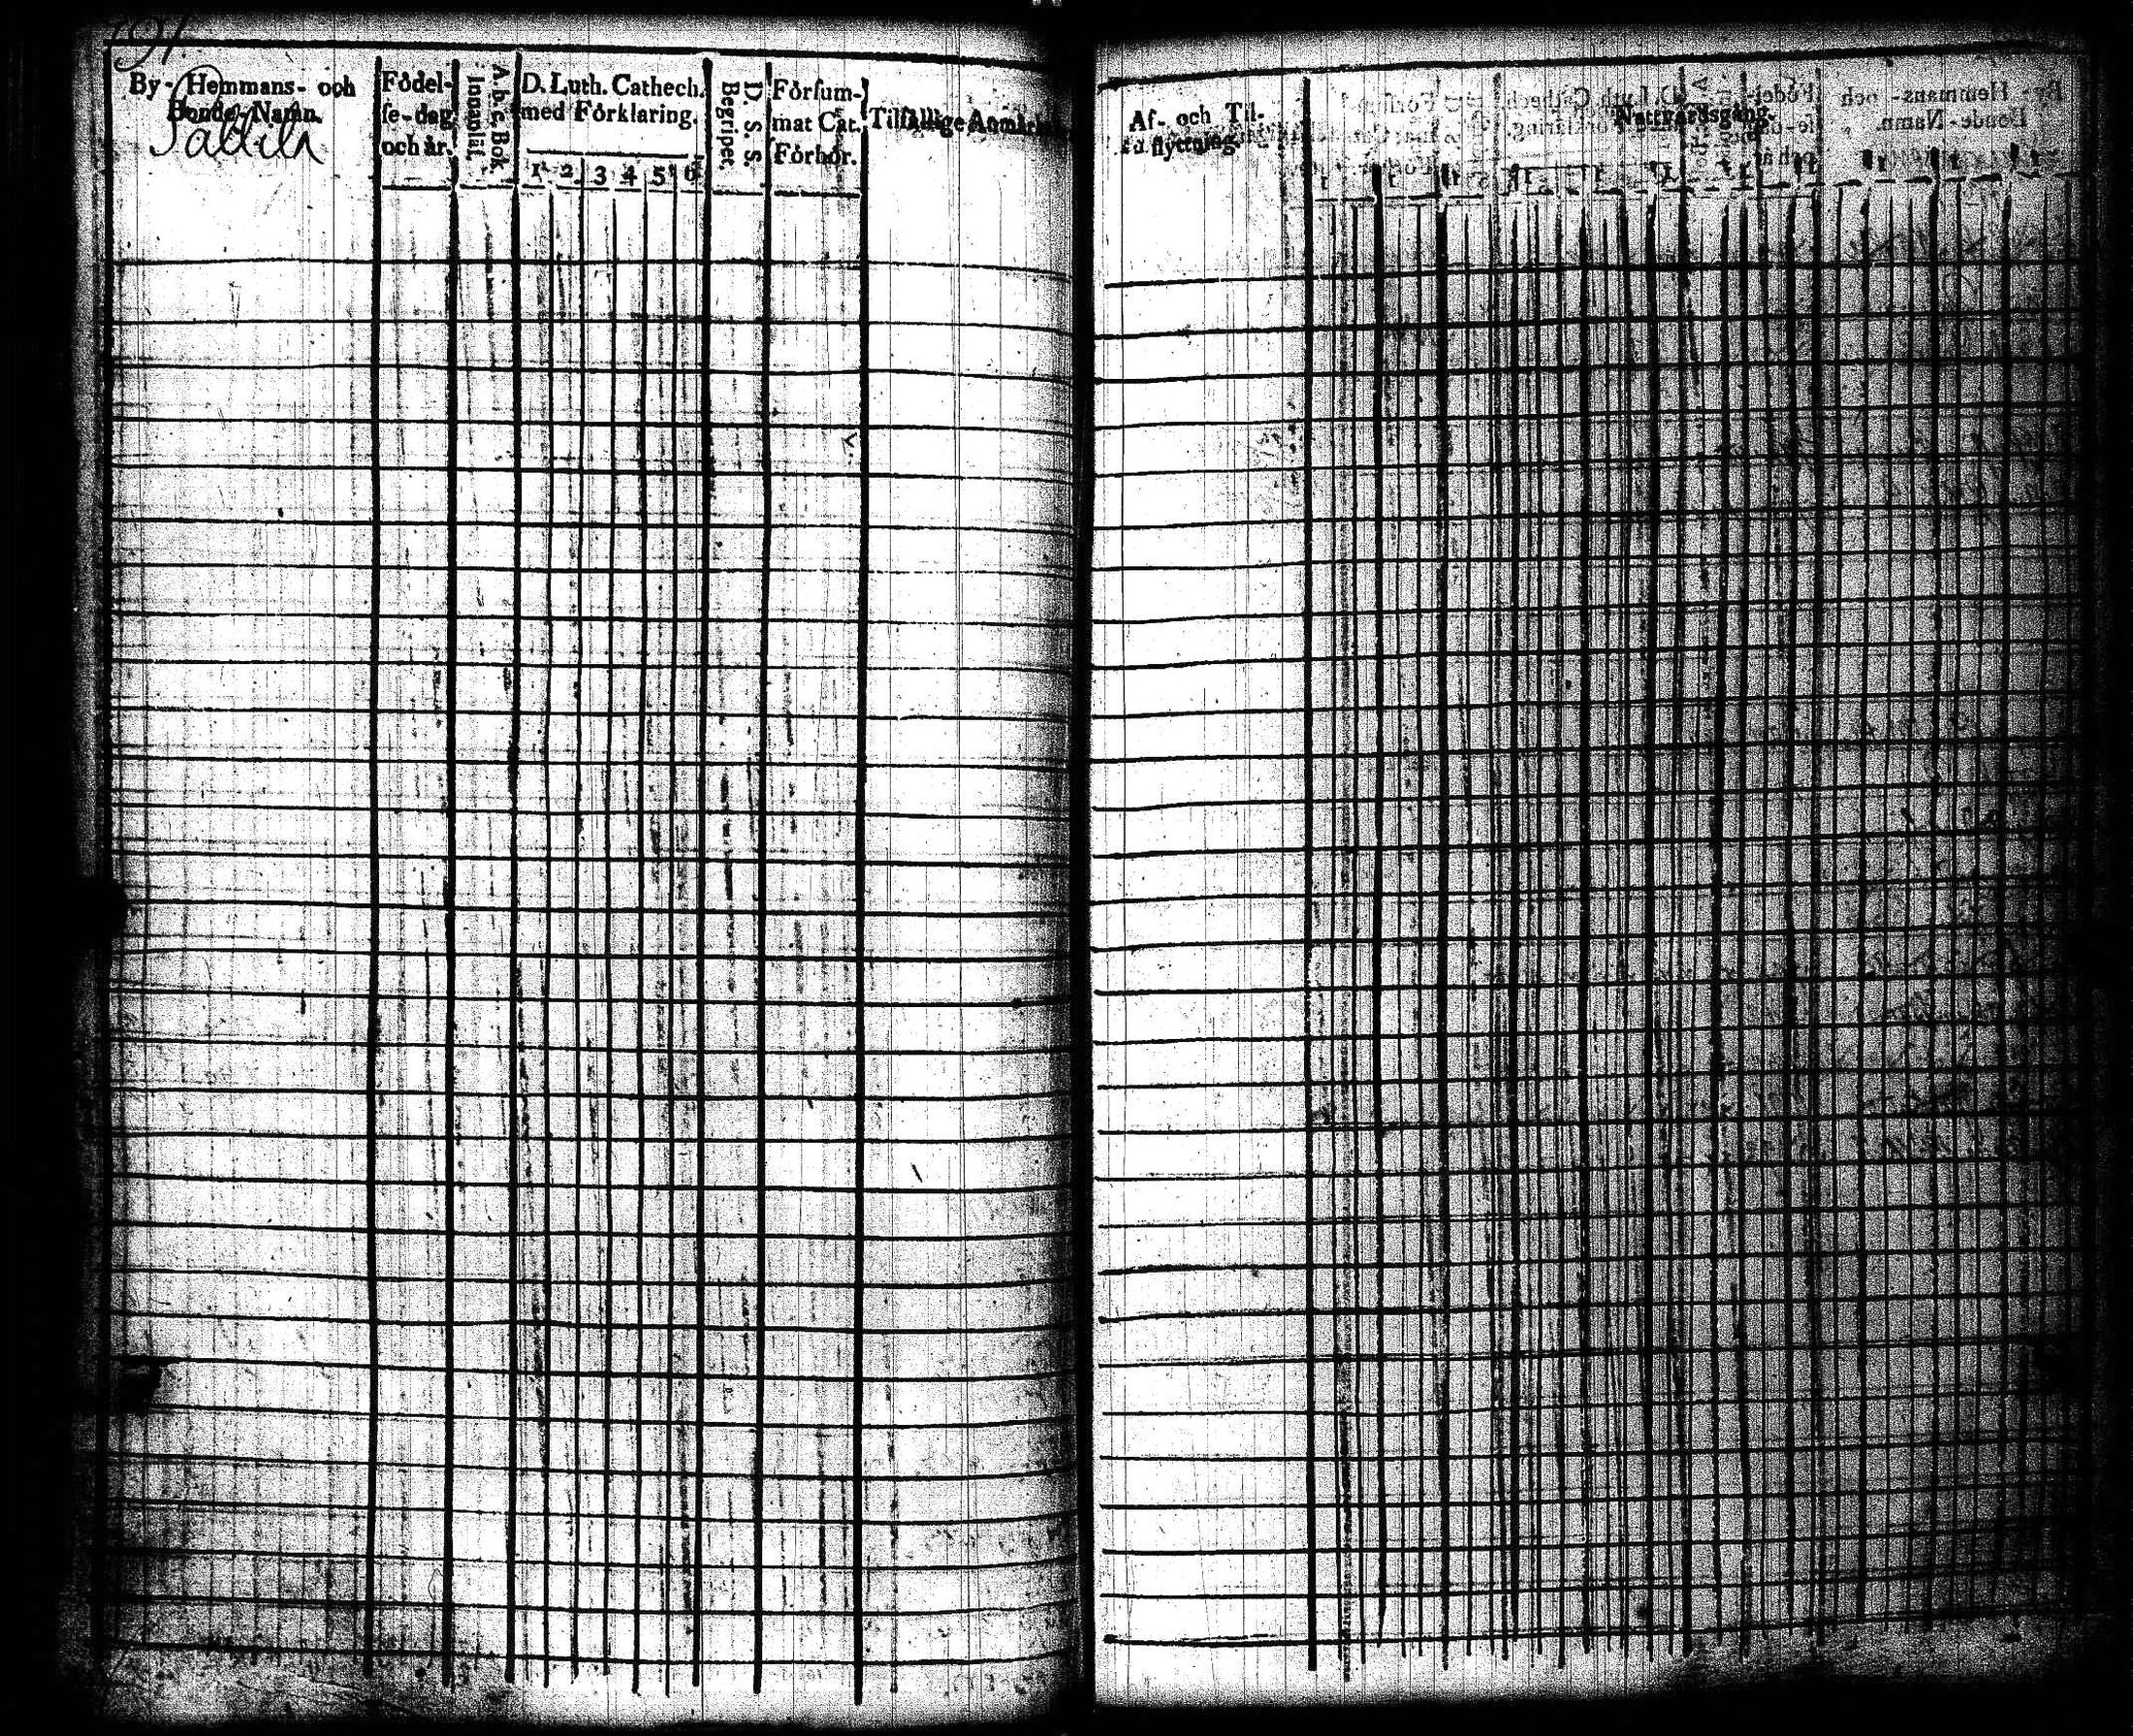 191
By- Hemmans- och
Bonde-Namn.
Fődel-
se-dag
och år.
A.b.c. Bok
D. Luth. Cathech.
med Főrklaring.
1 2 3 4 5 6
D. S. S.
Begriper.
Főrsum-
mat Cat.
Főrhőr.
Tilfällige
Af- och Til-
flyttning.
Nattvardsgång.